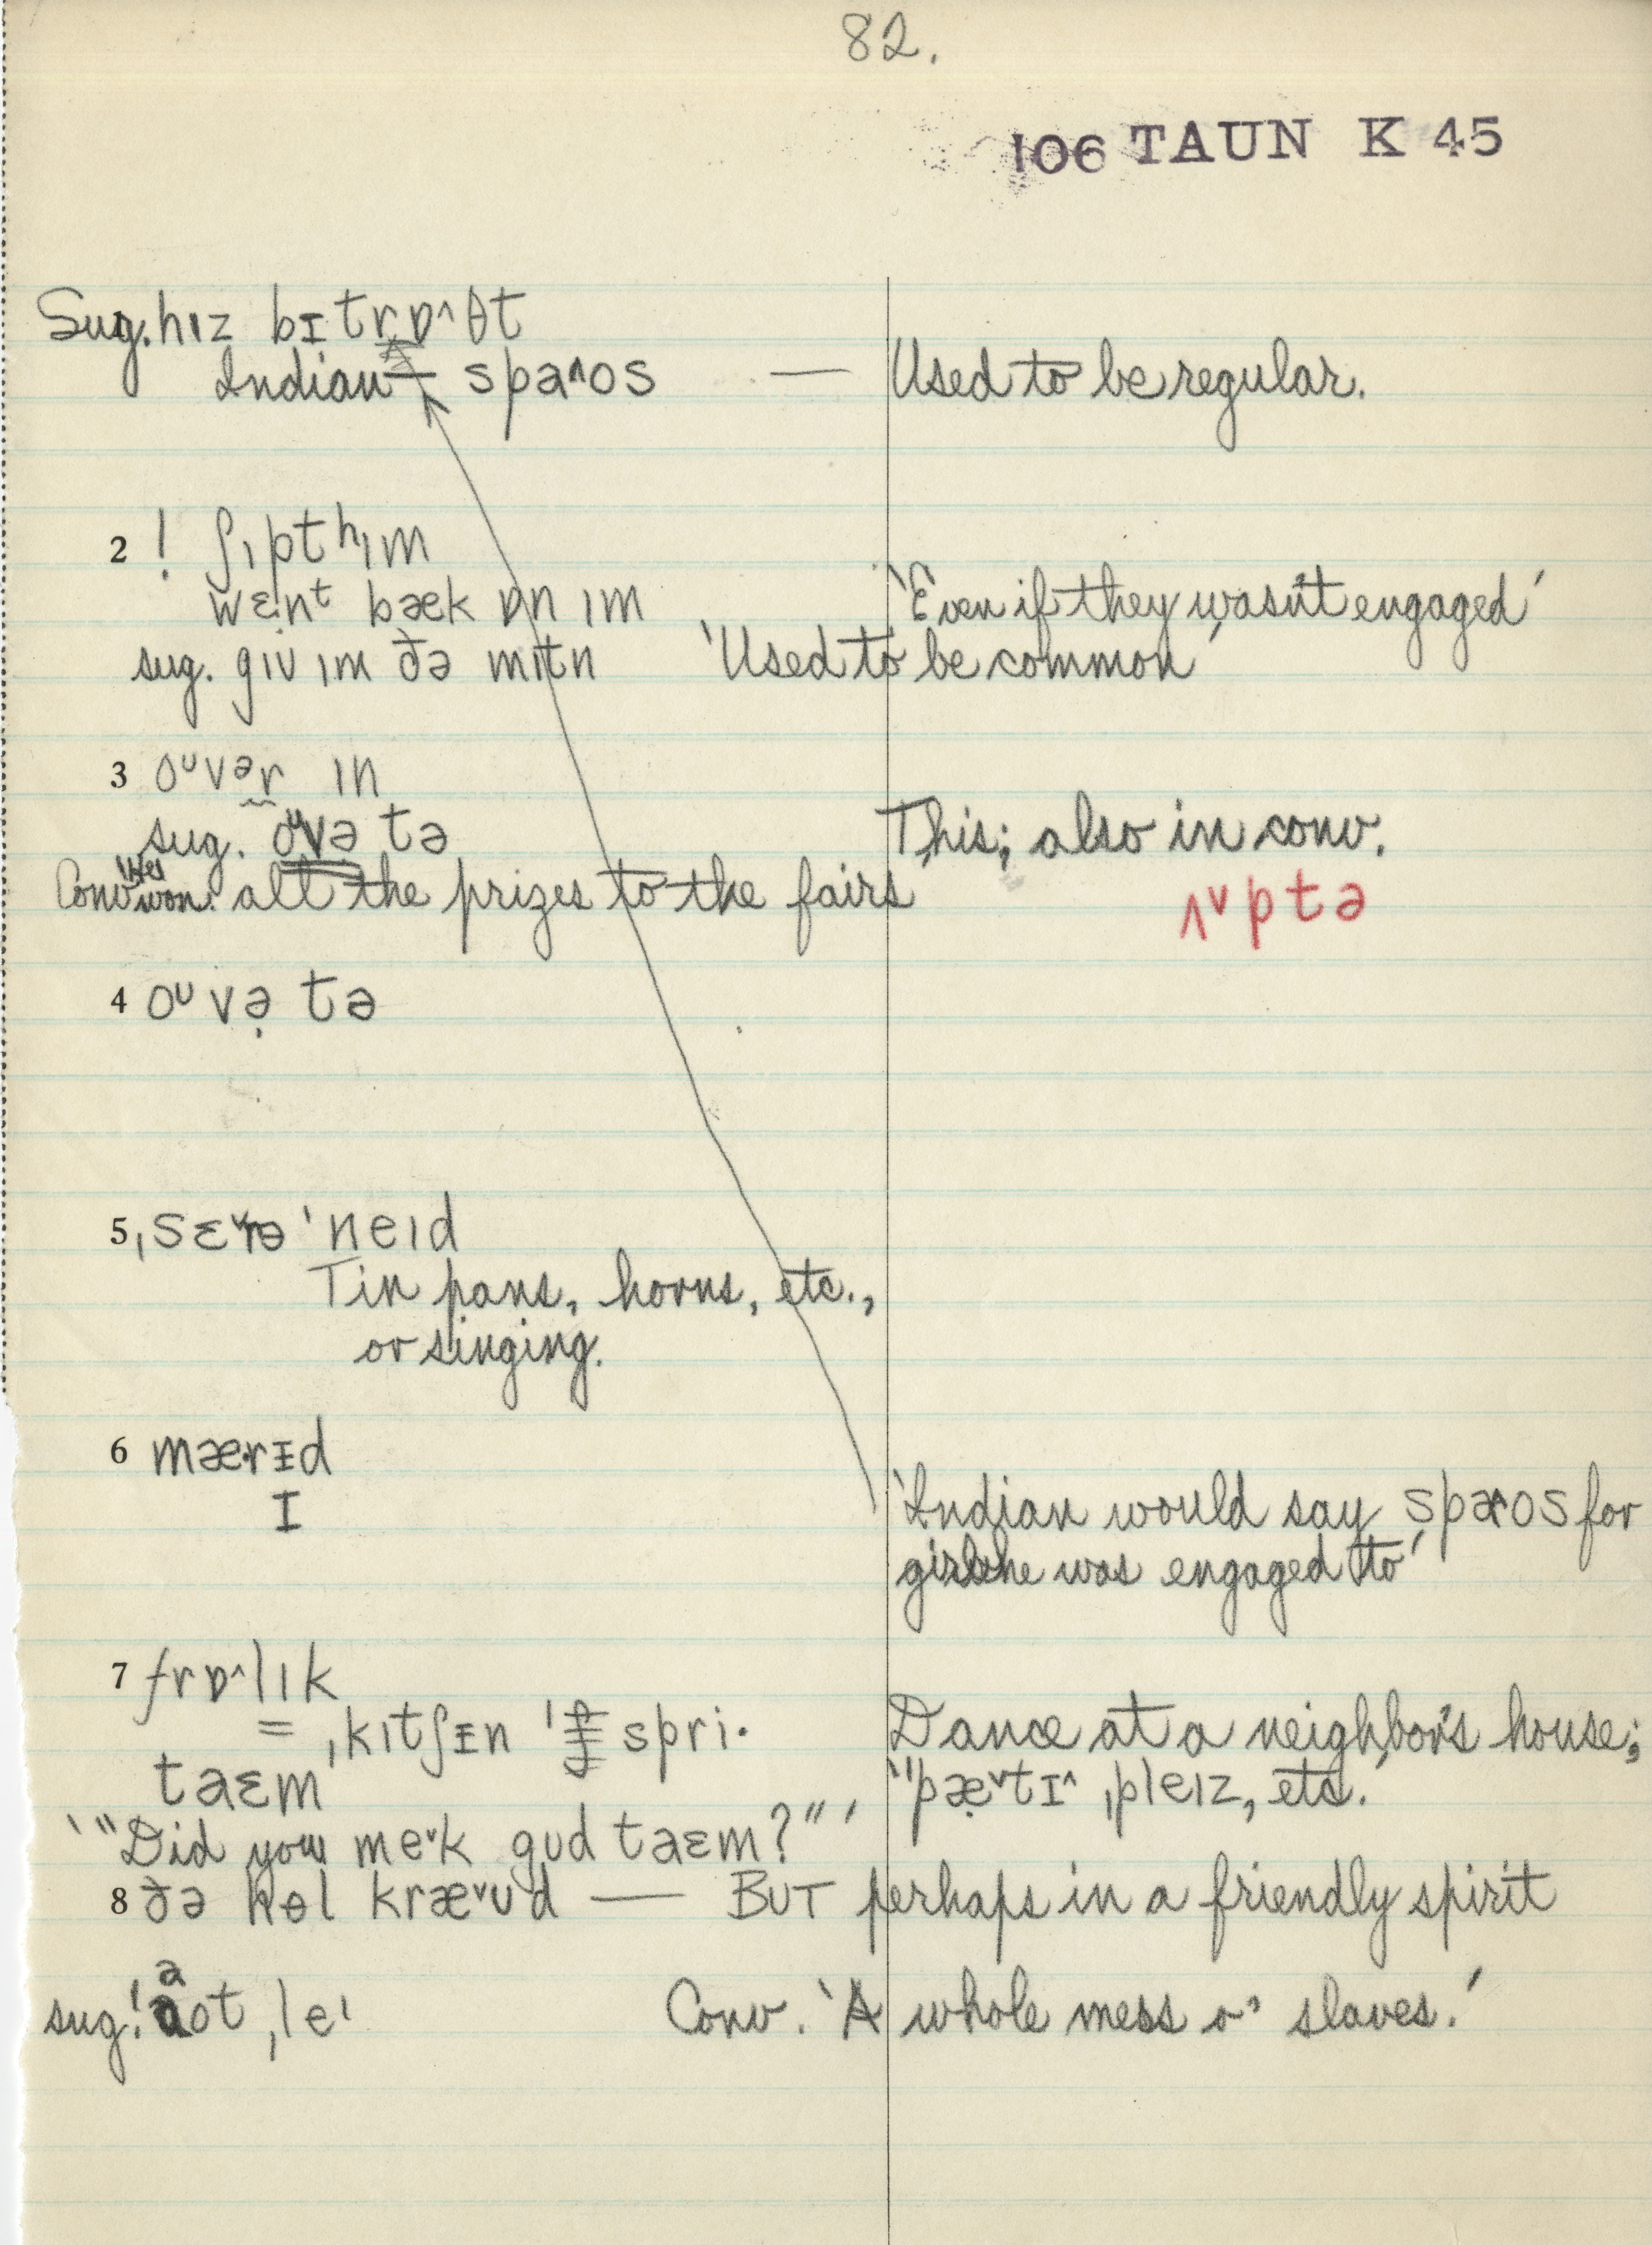 82.
106 TAUN K 45
Sug. hɪz bɪtrɒ^θt
Indian — spaʌos — Used to be regular.
2 ! ʃɪpt hɪm
wɛnᵗ bæk ɒn ɪm 'Even if they wasn't engaged'
sug. gɪv ɪm ðə mɪtn 'Used to be common'
3 oᶷvᵊr ɪn
sug. oᶷvə tə This; also in conv.
Conv. won all the prizes to the fairs ʌᵛptə
4 oᶷvə̣ tə
5 ˌsɛ˅rə ˈneɪd
Tin pans, horns, etc.,
or singing.
6 mærɪd
ɪ
'Indian would say spæʌos for
girl he was engaged to'
7 frɒ^lɪk
= ˌkɪtʃɪn ˈspri· Dance at a neighbor's house;
taɛm '"pæ˅tɪ^ ˌpleɪz, etc.'
'"Did you me˅k gud taɛm?"'
8 ðə hɵl kræ˅ud — BUT perhaps in a friendly spirit
a
sug. ! ot ˌleɪ Conv. 'A whole mess o' slaves.'